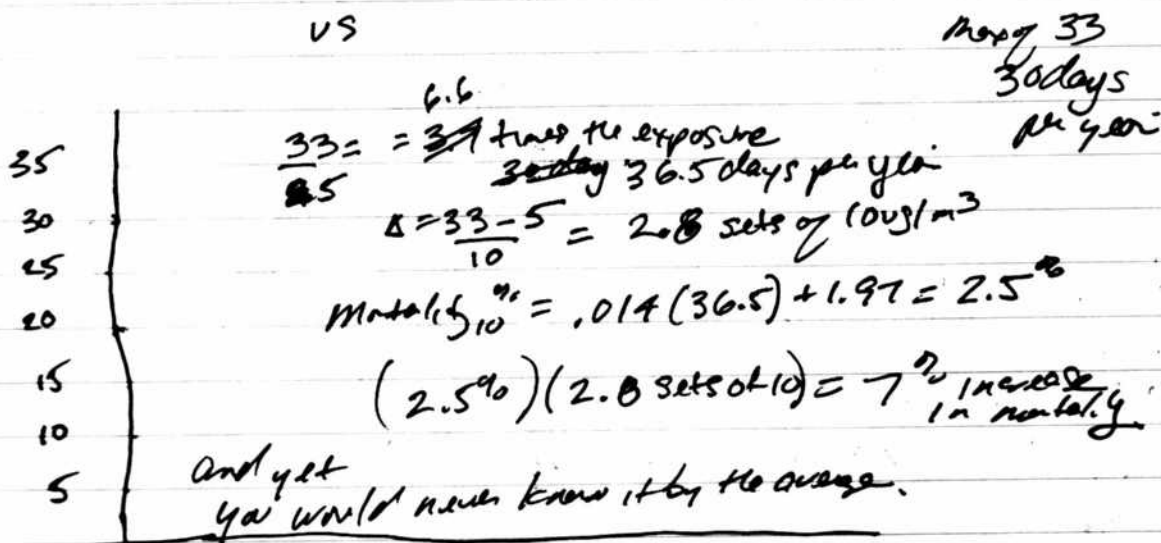 VS
Max of 33
30 days
per year
6.6
33 = = 3.7 times the exposure
5
30 day 36.5 days per year
Δ = 33 - 5 = 2.8 sets of 10ug/m3
10
Mortality10 % = .014 (36.5) + 1.97 = 2.5%
(2.5%) (2.8 sets of 10) = 7% increase
in mortality.
and yet
you would never know it by the average.
35
30
25
20
15
10
5